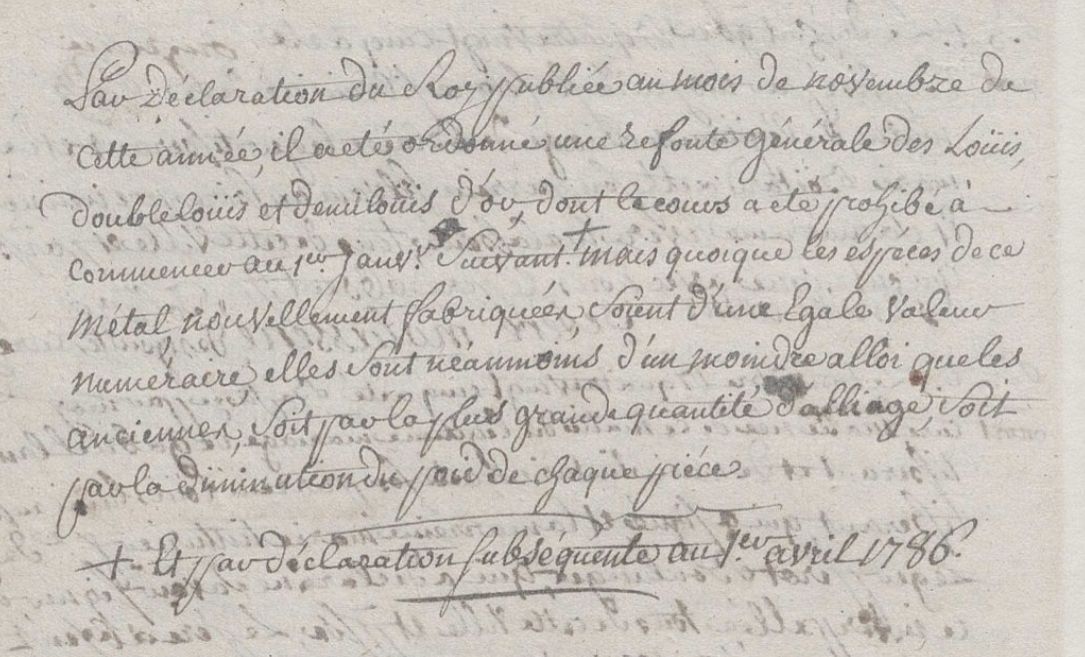 Par déclaration du Roy publiée au mois de novembre de
Cette année, il a eté ordonné une refonte générale des Loüis,
double loüis et demi loüis d'or, dont le cours a eté prohibé à
commencer au 1er. Janvr. Suivant. + mais quoique les espéces de ce
métal nouvellement fabriquées soient d'une Egale valeur
numéraire elles sont néanmoins d'un moindre alloi que les
anciennes, soit par la plus grande quantité d'alliage, soit
par la diminution du poid de chaque piéce.
+ Et par déclaration subséquente au 1er avril 1786.